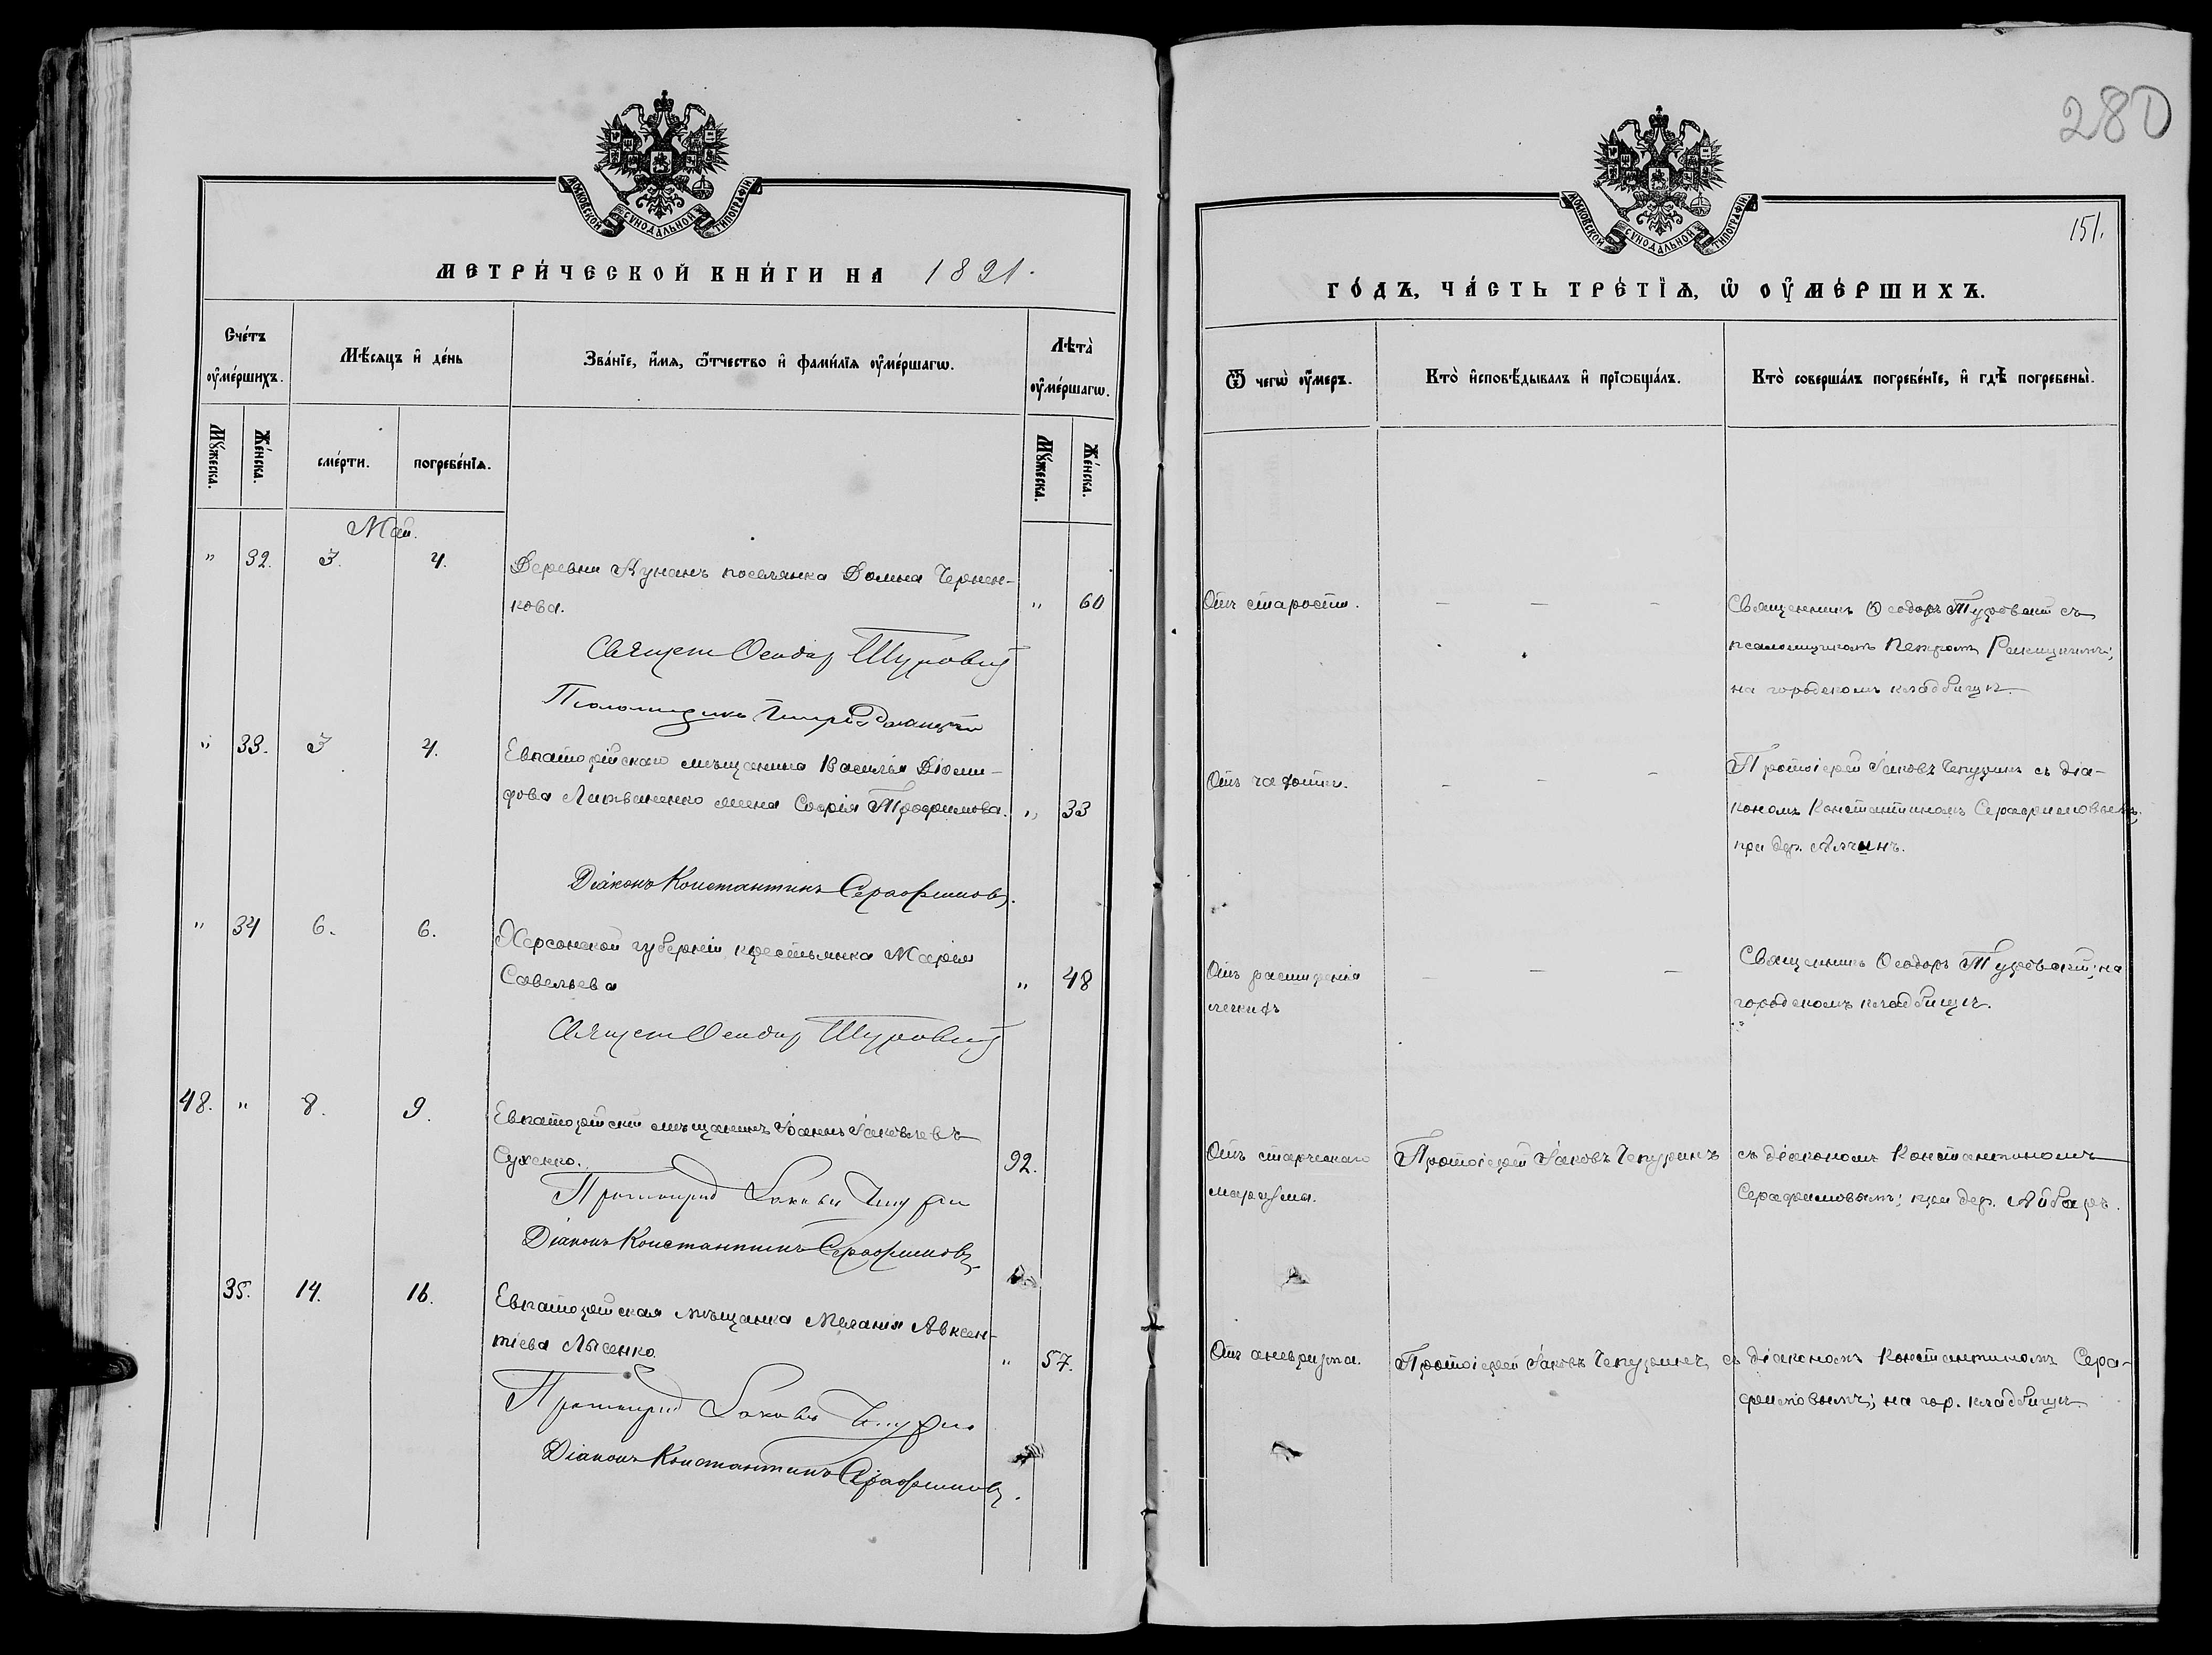 МОСКОВСКОЙ СѴНОДАЛЬНОЙ ТИПОГРАФІИ.
МЕТРИ́ЧЕСКОЙ КНИ́ГИ НА 1891.
Счéтъ ᲂу҆мéршихъ.
Мѣ́сяцъ и҆ дéнь
Звáнїе, и҆́мя, ѻ҆́тчество и҆ фамúлїя ᲂу҆мéршагѡ.
Лѣтà ᲂу҆мéршагѡ.
Мꙋ́жеска.
Жéнска.
смéрти.
погребéнїѧ.
Мꙋ́жеска.
Жéнска.
Май.
" 32. 3. 4. Деревни Кунанъ поселянка Домна Чернен-
кова. " 60
Священ Ѳеодор Туровскій
Псаломщикъ Петръ
" 33. 3 4. Евпаторійскаго мѣщанина Василія Діоми-
дова Литвиненко жена Софія Трофимова. " 33
Діаконъ Константинъ Серафимовъ.
" 34 6. 6. Херсонской губерніи крестьянка Марія
Савельева " 48
Священ Ѳеодор Туровскій
48. " 8. 9. Евпаторійскій мѣщанинъ Іоаннъ Іаковлевъ
Сухенко. 92.
Протоіерей Іаковъ Чепуринъ
Діаконъ Константинъ Серафимовъ.
35. 14. 16. Евпаторійская мѣщанка Меланія Авксен-
тіева Лысенко. " 57.
Протоіерей Іаковъ Чепуринъ
Діаконъ Константинъ Серафимовъ.
280
151.
МОСКОВСКОЙ СѴНОДАЛЬНОЙ ТИПОГРАФІИ.
ГО́ДЪ, ЧА́СТЬ ТРЕ́ТЇѦ, Ѡ҆ ОУ҆МЕ́РШИХЪ.
Ѿ чегѡ̀ ᲂу҆́меръ.
Ктò и҆сповѣ́дывалъ и҆ прїѡбщáлъ.
Ктò совершáлъ погребéнїе, и҆ гдѣ̀ погребены̀.
Отъ старости. — — — Священникъ Ѳеодоръ Туровскій съ
псаломщикомъ Петромъ
на городскомъ кладбищѣ.
Отъ чахотки. — — — Протоіерей Іаковъ Чепуринъ съ діа-
кономъ Константиномъ Серафимовымъ;
при дер.
Отъ расширенія — — — Священникъ Ѳеодоръ Туровскій; на
легкихъ городскомъ кладбищѣ.
Отъ старческаго Протоіерей Іаковъ Чепуринъ съ діакономъ Константиномъ
маразма. Серафимовымъ; при дер. Айбаръ.
Отъ аневризма. Протоіерей Іаковъ Чепуринъ, съ діакономъ Константиномъ Сера-
фимовымъ; на гор. кладбищѣ.